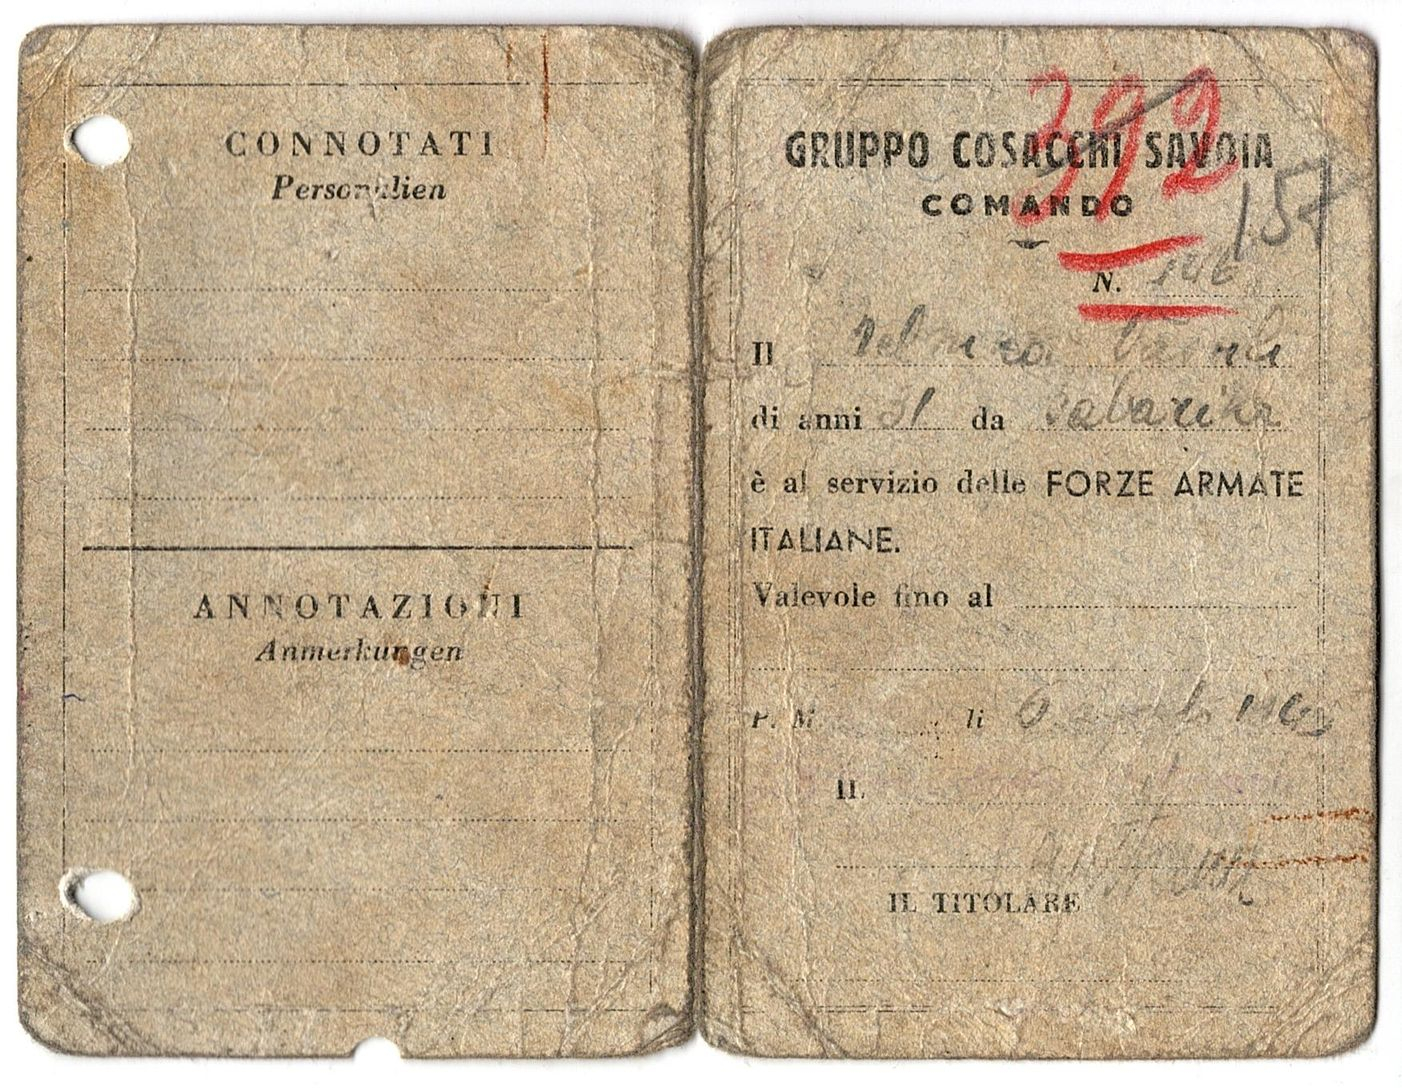 CONNOTATI
Personalien
ANNOTAZIONI
Anmerkungen
392
GRUPPO COSACCHI SAVOIA
157
COMANDO
N. 146
Il
di anni 31 da
è al servizio delle FORZE ARMATE
ITALIANE.
Valevole fino al
P. M. li
IL
IL TITOLARE